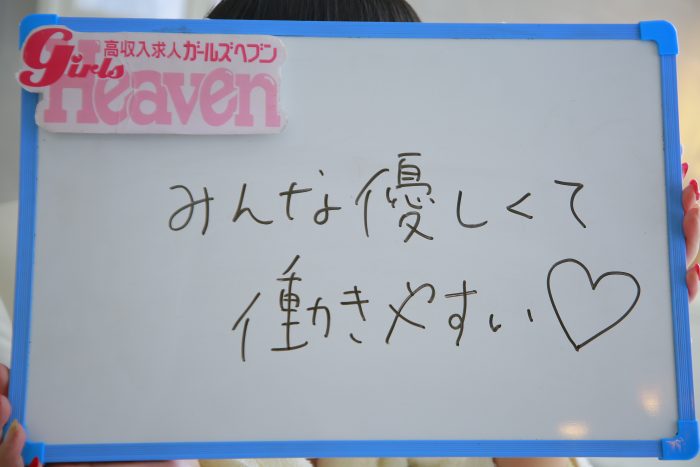 高収入求人 ガールズヘブン
Girls
Heaven
みんな優しくて
働きやすい♡